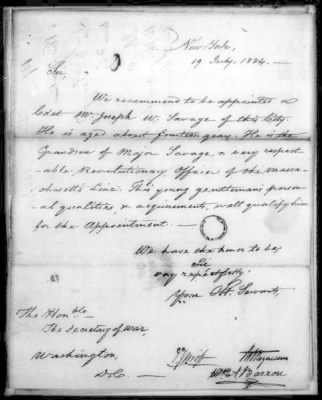 New York,
19 July, 1824.
Sir,
We recommend to be appointed a
Cadet Mr. Joseph W. Savage of this City.
He is aged about fourteen years. He is the
Grandson of Major Savage, a very respect-
able Revolutionary Officer of the Massa-
chusetts Line. This young gentleman's person-
al qualities, & acquirements, well qualify him
for the Appointment.
We have the honor to be,
Sir
very respectfully,
Your Obt. Servants,
The Honble
The Secretary of War,
Washington,
D.C.